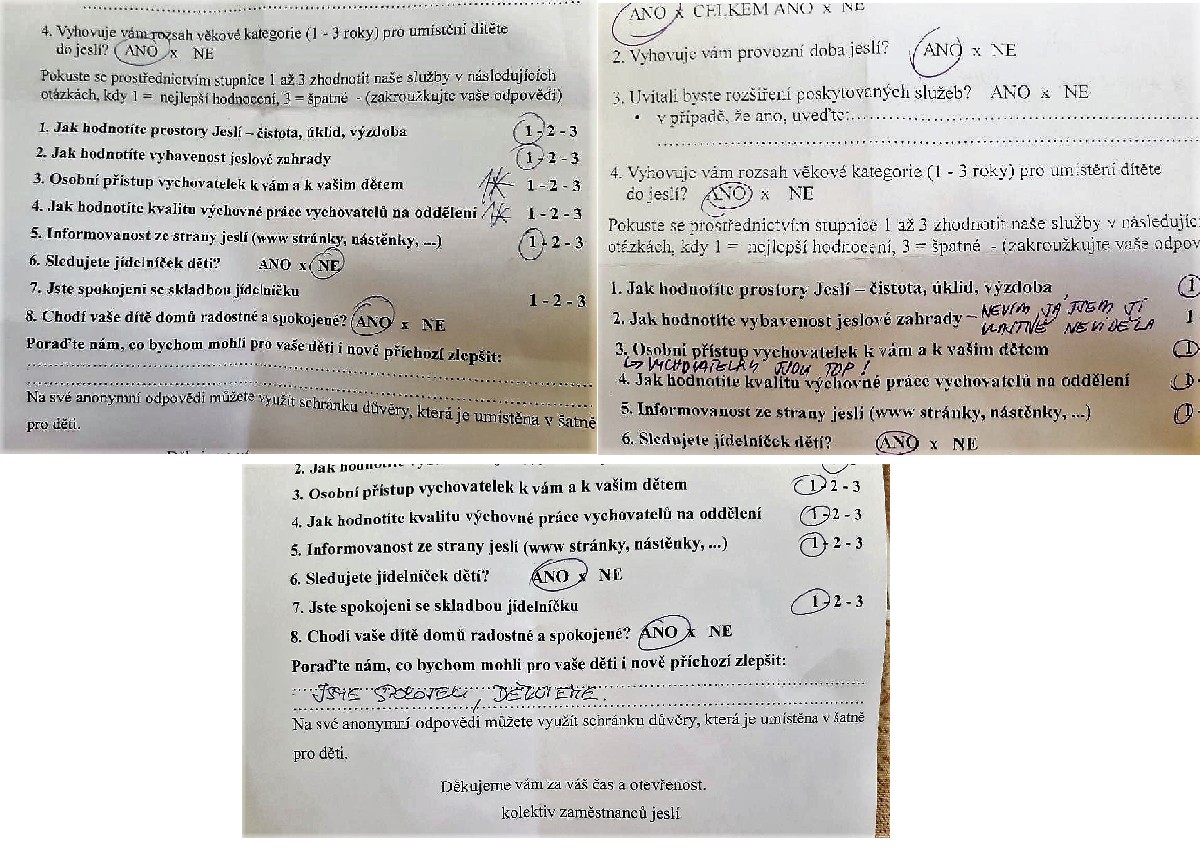 4. Vyhovuje vám rozsah věkové kategorie (1 - 3 roky) pro umístění dítěte
do jeslí? ANO x NE
Pokuste se prostřednictvím stupnice 1 až 3 zhodnotit naše služby v následujících
otázkách, kdy 1 = nejlepší hodnocení, 3 = špatné - (zakroužkujte vaše odpovědi)
1. Jak hodnotíte prostory Jeslí – čistota, úklid, výzdoba 1 - 2 - 3
2. Jak hodnotíte vybavenost jeslové zahrady 1 - 2 - 3
3. Osobní přístup vychovatelek k vám a k vašim dětem 1* 1 - 2 - 3
4. Jak hodnotíte kvalitu výchovné práce vychovatelů na oddělení 1* 1 - 2 - 3
5. Informovanost ze strany jeslí (www stránky, nástěnky, ...) 1 - 2 - 3
6. Sledujete jídelníček dětí? ANO x NE
7. Jste spokojeni se skladbou jídelníčku 1 - 2 - 3
8. Chodí vaše dítě domů radostné a spokojené? ANO x NE
Poraďte nám, co bychom mohli pro vaše děti i nově příchozí zlepšit:
Na své anonymní odpovědi můžete využít schránku důvěry, která je umístěna v šatně
pro děti.
ANO x CELKEM ANO x NE
2. Vyhovuje vám provozní doba jeslí? ANO x NE
3. Uvítali byste rozšíření poskytovaných služeb? ANO x NE
• v případě, že ano, uveďte:
4. Vyhovuje vám rozsah věkové kategorie (1 - 3 roky) pro umístění dítěte
do jeslí? ANO x NE
Pokuste se prostřednictvím stupnice 1 až 3 zhodnotit naše služby v následujíc
otázkách, kdy 1 = nejlepší hodnocení, 3 = špatné - (zakroužkujte vaše odpov
1. Jak hodnotíte prostory Jeslí – čistota, úklid, výzdoba 1
2. Jak hodnotíte vybavenost jeslové zahrady – NEVÍM JÁ JSEM JÍ 1
VLASTNĚ NEVIDĚLA
3. Osobní přístup vychovatelek k vám a k vašim dětem 1
↳ VYCHOVATELKY JSOU TOP!
4. Jak hodnotíte kvalitu výchovné práce vychovatelů na oddělení 1-
5. Informovanost ze strany jeslí (www stránky, nástěnky, ...) 1
6. Sledujete jídelníček dětí? ANO x NE
2. Jak
3. Osobní přístup vychovatelek k vám a k vašim dětem 1 - 2 - 3
4. Jak hodnotíte kvalitu výchovné práce vychovatelů na oddělení 1 - 2 - 3
5. Informovanost ze strany jeslí (www stránky, nástěnky, ...) 1 - 2 - 3
6. Sledujete jídelníček dětí? ANO x NE
7. Jste spokojeni se skladbou jídelníčku 1 - 2 - 3
8. Chodí vaše dítě domů radostné a spokojené? ANO x NE
Poraďte nám, co bychom mohli pro vaše děti i nově příchozí zlepšit:
JSME SPOKOJENI, DĚKUJEME.
Na své anonymní odpovědi můžete využít schránku důvěry, která je umístěna v šatně
pro děti.
Děkujeme vám za váš čas a otevřenost.
kolektiv zaměstnanců jeslí